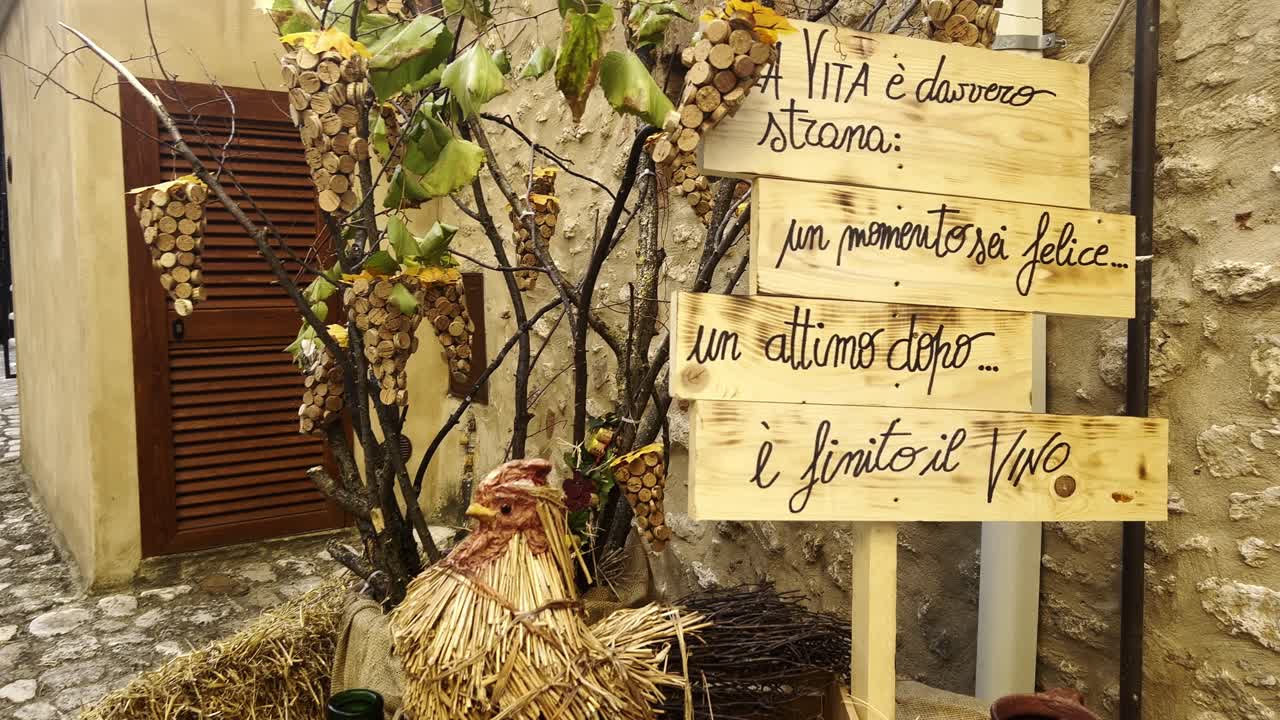 A VITA è davvero
strana:
un momento sei felice...
un attimo dopo...
è finito il VINO